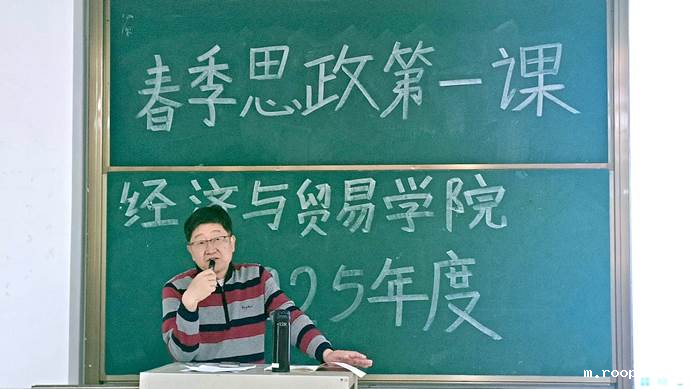 春季思政第一课
经济与贸易学院
25年度
m.roop